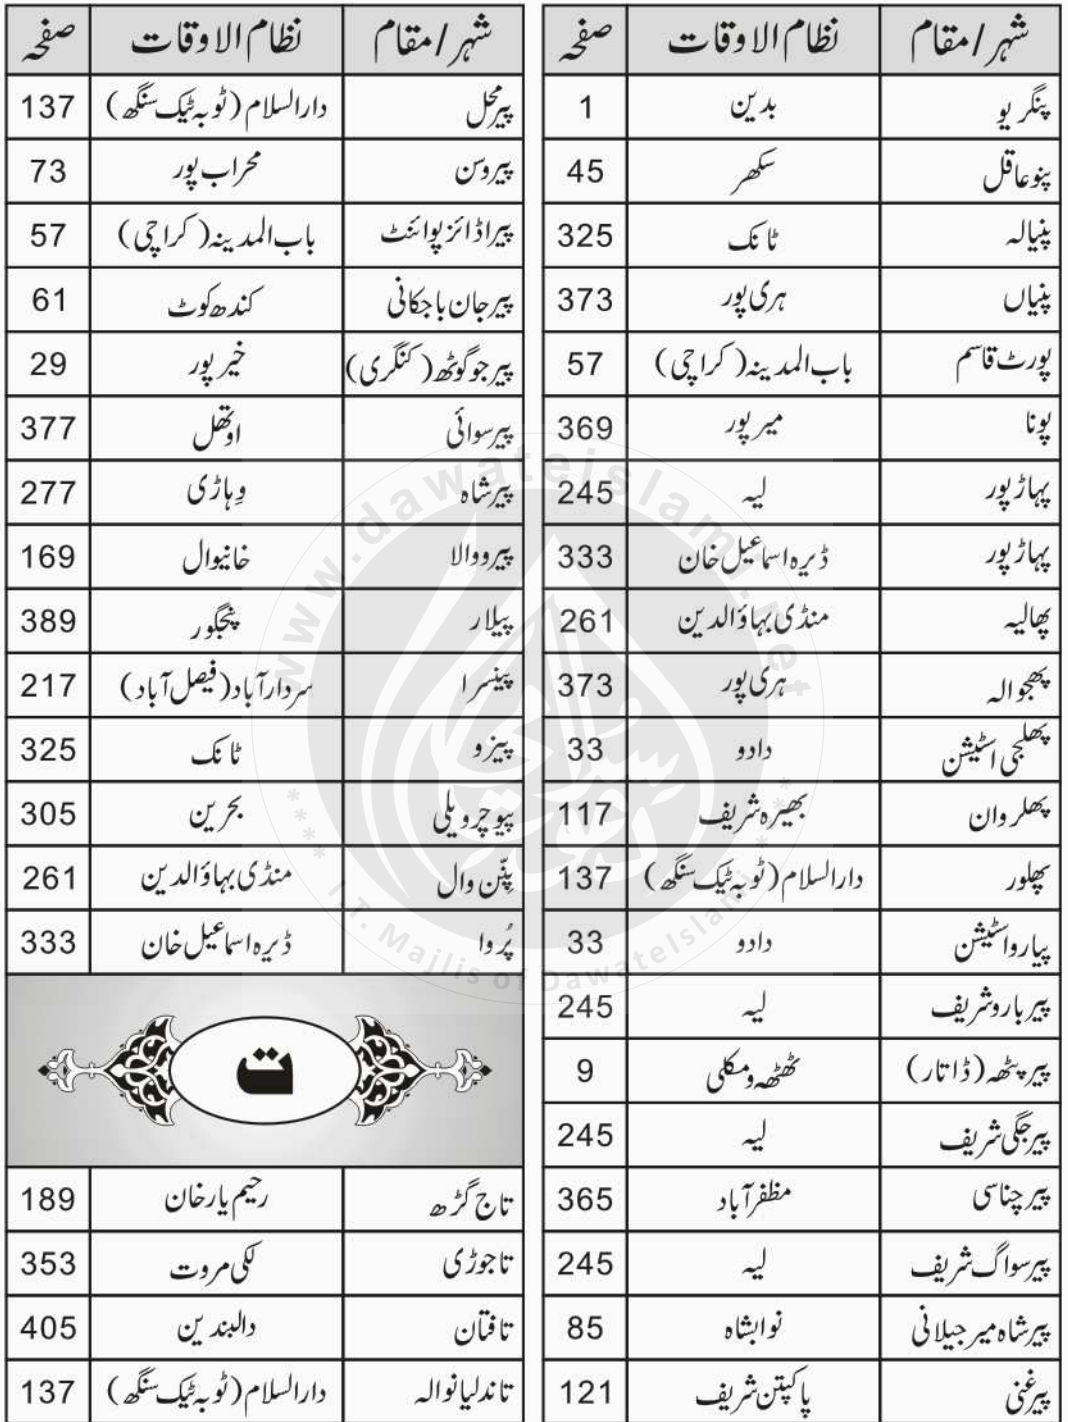 شہر/مقام نظام الاوقات صفحہ
پنگریو بدین 1
پنوعاقل سکھر 45
پنیالہ ٹانک 325
پنیاں ہری پور 373
پورٹ قاسم باب المدینہ(کراچی) 57
پونا میرپور 369
پہاڑپور لیہ 245
پہاڑپور ڈیرہ اسماعیل خان 333
پھالیہ منڈی بہاؤالدین 261
پھجوالہ ہری پور 373
پھلجی اسٹیشن دادو 33
پھلروان بھیرہ شریف 117
پھلور دارالسلام(ٹوبہ ٹیک سنگھ) 137
پیارواسٹیشن دادو 33
پیرباروشریف لیہ 245
پیرپٹھہ(ڈاتار) ٹھٹھہ ومکلی 9
پیرجگی شریف لیہ 245
پیرچناسی مظفرآباد 365
پیرسواگ شریف لیہ 245
پیرشاہ میرجیلانی نوابشاہ 85
پیرغنی پاکپتن شریف 121
شہر/مقام نظام الاوقات صفحہ
پیرمحل دارالسلام(ٹوبہ ٹیک سنگھ) 137
پیروسن محراب پور 73
پیراڈائزپوائنٹ باب المدینہ(کراچی) 57
پیرجان باجکانی کندھ کوٹ 61
پیرجوگوٹھ(کنگری) خیرپور 29
پیرسوائی اوتھل 377
پیرشاہ وِہاڑی 277
پیرووالا خانیوال 169
پیلار پنجگور 389
پینسرا سردارآباد(فیصل آباد) 217
پیزو ٹانک 325
پیوچرویلی بحرین 305
پِنّن وال منڈی بہاؤالدین 261
پُروا ڈیرہ اسماعیل خان 333
ت
تاج گڑھ رحیم یارخان 189
تاجوڑی لکی مروت 353
تافتان دالبندین 405
تاندلیانوالہ دارالسلام(ٹوبہ ٹیک سنگھ) 137
www.dawateislami.net
I.T. Majlis of DawateIslami